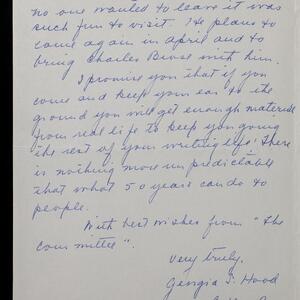 no one wanted to leave it was
such fun to visit. He plans to
come again in April and to
bring Charles with him.
I promise you that if you
come and keep your ear to the
ground you will get enough material
from real life to keep you going
the rest of your writing life! There
is nothing more unpredictable
that what 50 years can do to
people.
With best wishes from "The
Committee".
Very truly,
Georgia S. Hood